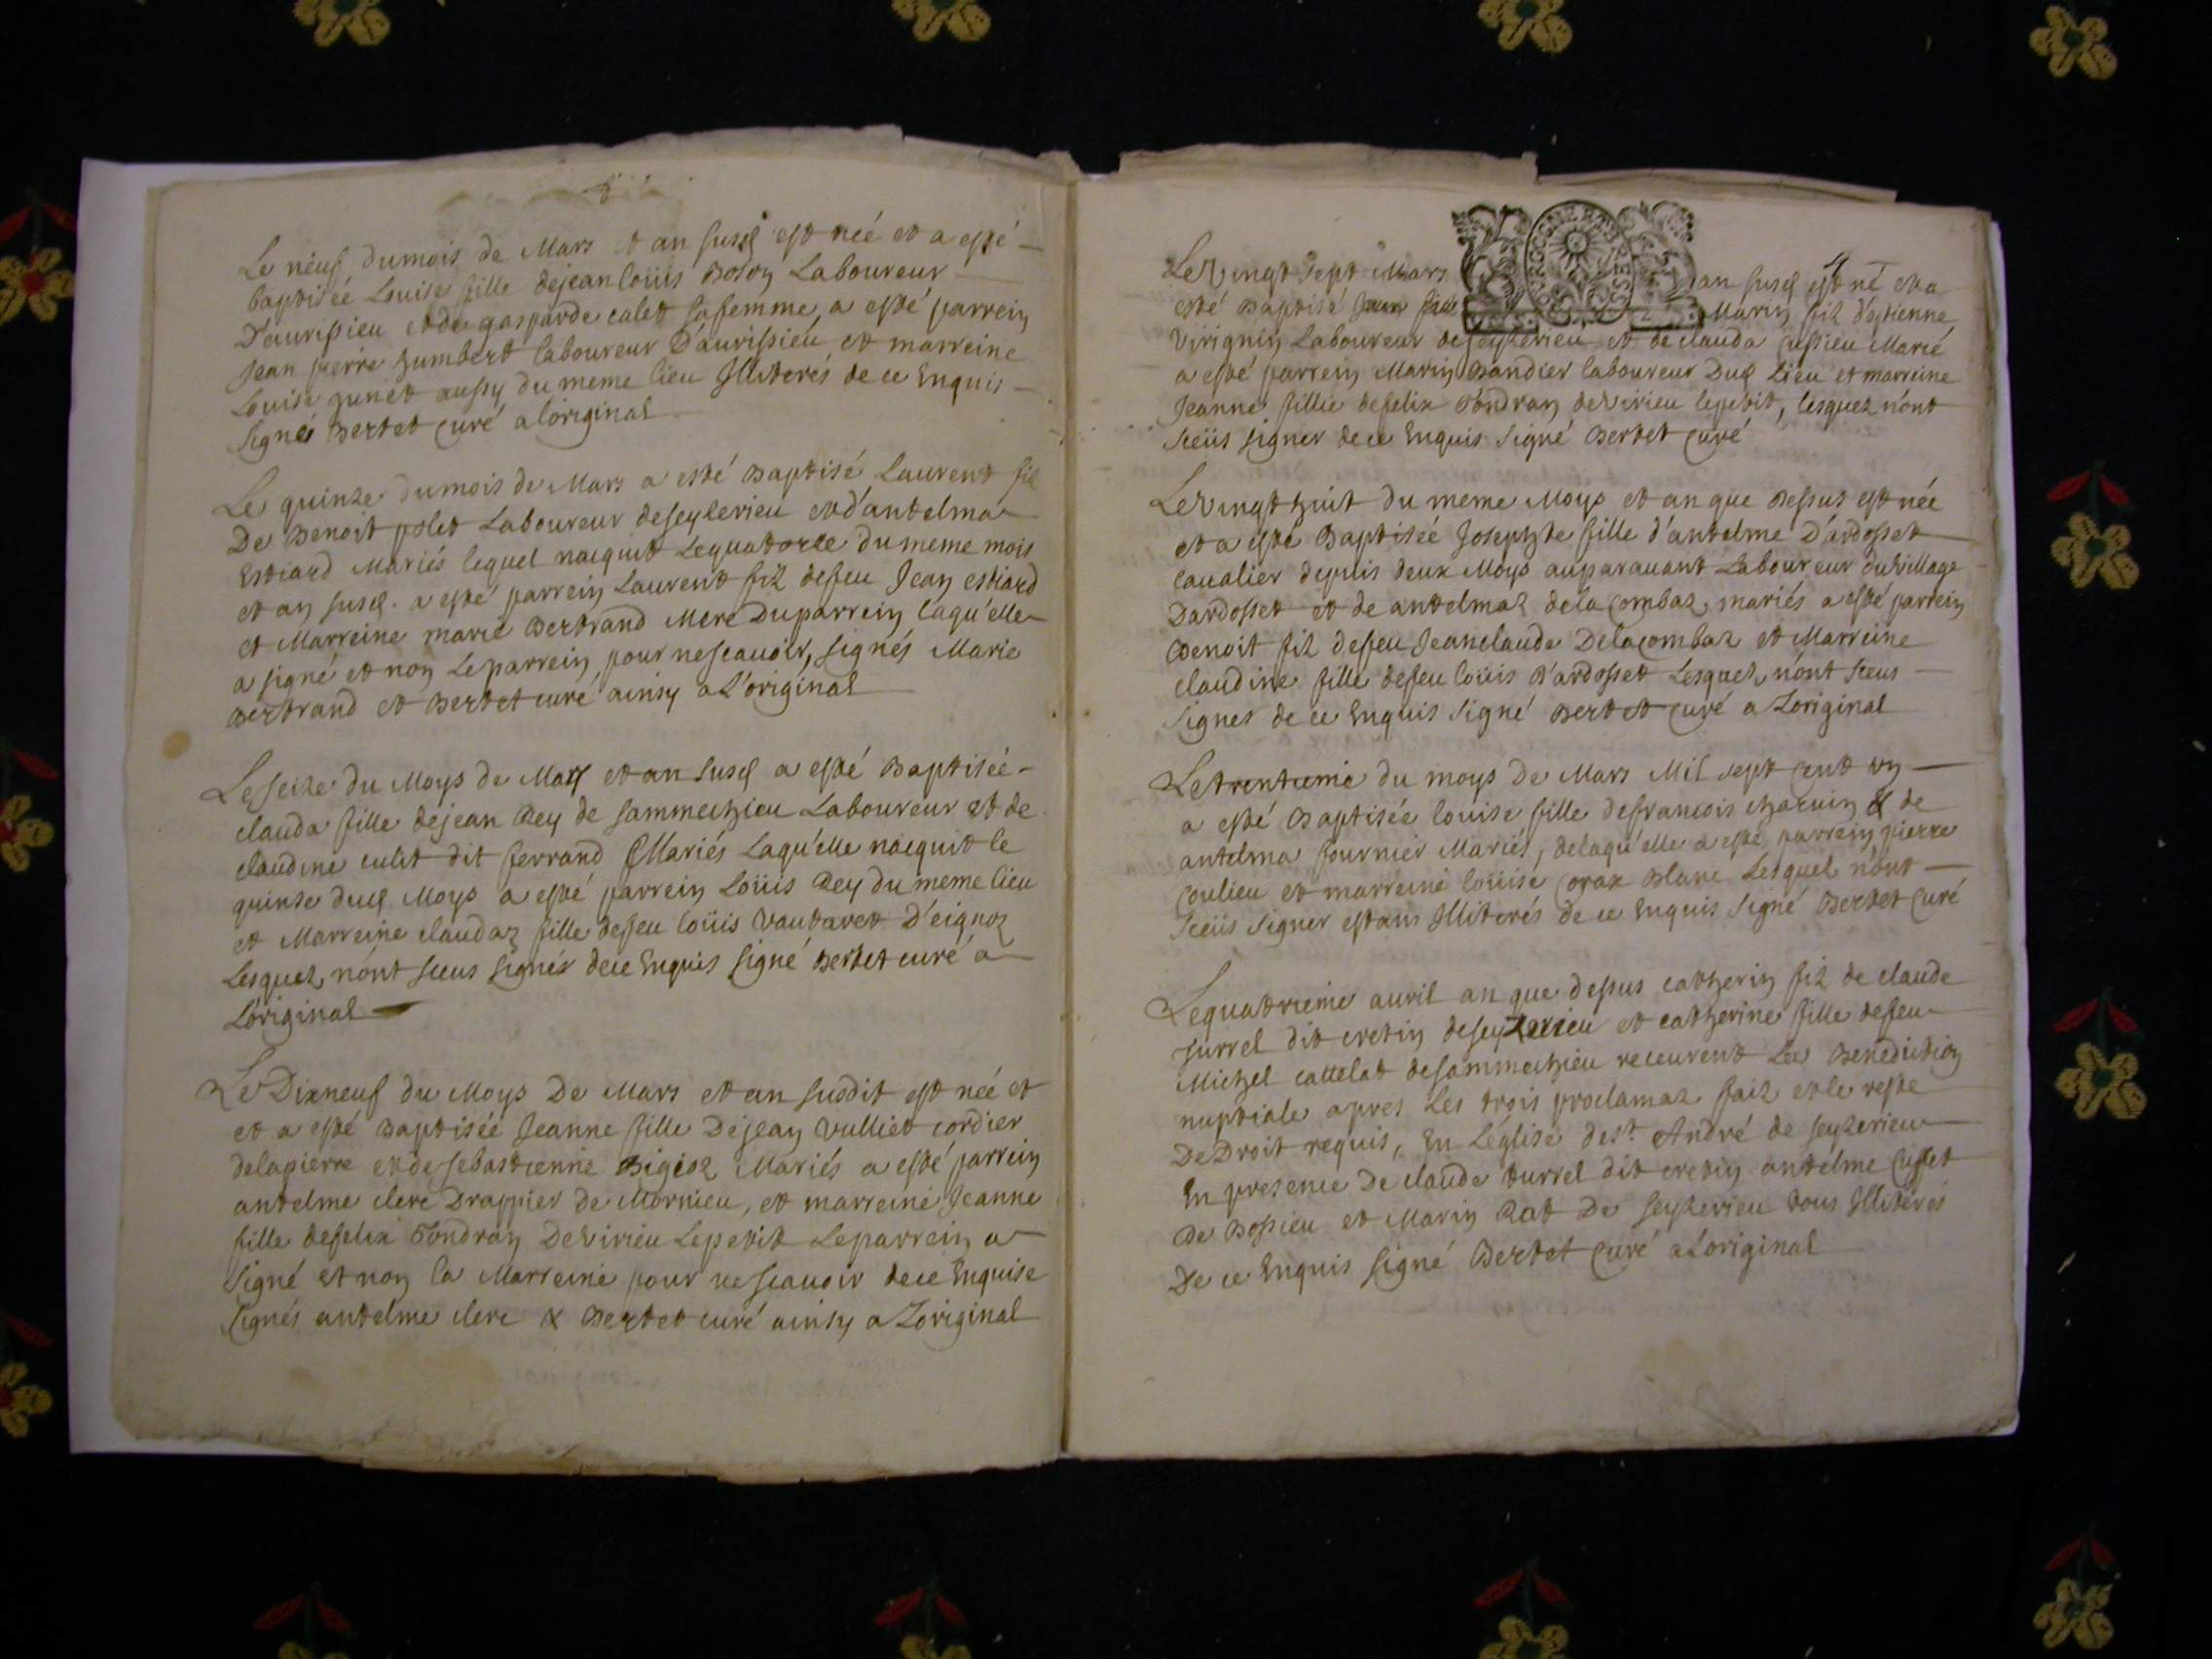 Le neuf dumois de Mars et an susd est née et a esté
baptiseé Louise fille dejean loüis Boson Laboureur
D'aurissieu et de gasparde calet sa femme, a esté parrein
Jean pierre humbert laboureur D'aurissieu et marreine
Louise aussy du meme lieu Illiterés de ce Enquis
signés Bertet curé a loriginal
Le quinze dumois de Mars a esté Baptisé Laurent fil
De Benoit polet Laboureur deseyzerieu et d'antelma
Estiard Mariés lequel nacquit Lequatorze du meme mois
et an susd. a esté parrein Laurent filz defeu Jean estiard
et Marreine marie Bertrand Mere Duparrein laqu'elle
a signé et non Leparrein pour nescauoir, signés Marie
Bertrand et Bertet curé ainsy a L'original
Le seize du Moys de Mars et an susd a esté Baptiseé
clauda fille dejean Rey de sammechieu Laboureur et de
claudine culit dit ferrand Mariés Laqu'elle nacquit le
quinze dud Moys a esté parrein Loüis Rey du meme lieu
et Marreine claudaz fille defeu loüis vautaret D'eignoz
Lesquez n'ont sceus signér dece Enquis signé Bertet curé a
L'original
Le Dixneuf du Moys De Mars et an susdit est née et
et a esté Baptiseé Jeanne fille Dejean vulliet cordier
delapierre et de sebastienne Bigioz Mariés a esté parrein
antelme clerc Drappier de Mornieu, et marreine Jeanne
fille defelix Tondran Devirieu Lepetit Leparrein a
signé et non la Marreine pour nescauoir dece Enquise
signés antelme clerc & Bertet curé ainsy a Loriginal
4
Le Vingt sept Mars an susd est né et a
esté Baptisé Marin filz d'estienne
virignin Laboureur deseyzerieu et de clauda cussieu Marié
a esté parrein Marin Bandier laboureur Dud Lieu et marreine
Jeanne fillie defelix Tondran deVirieu lepetit, lesquez n'ont
sceüs signer dece Enquis signé Bertet curé
Le Vingt huit du meme Moys et an que Dessus est née
et a esté Baptiseé Josephte fille d'antelme D'ardosset
caualier depuis deux Moys auparauant Laboureur du village
Dardosset et de antelmaz dela combaz, mariés a esté parrein
Benoit filz defeu Jeanclaude Delacombaz et Marreine
claudine fille defeu loüis D'ardosset Lesquez n'ont sceus
signer de ce Enquis signé Bertet curé a Loriginal
Le trentieme du moys de Mars Mil sept cent vn
a esté Baptisée louise fille defrancois charuin & de
antelma fournier Mariés, delaqu'elle a esté parrein pierre
coulieu et marreine loüise corax Blanc Lesquel n'ont
sceüs signer estans Illiterés de ce Enquis signé Bertet curé
Lequatrieme auril an que dessus catherin filz de claude
turrel dit cretin deseyzerieu et catherine fille defeu
Michel cattelat desammechieu receurent La Benediction
nuptiale apres Les trois proclamaz faiz et le reste
De Droit requis, En L'églisé dest André de seyzerieu
En presence De claude turrel dit cretin antelme cusset
De Bossieu et Marin Rat De seyzerieu tous Illiterés
De ce Enquis signé Bertet curé a Loriginal